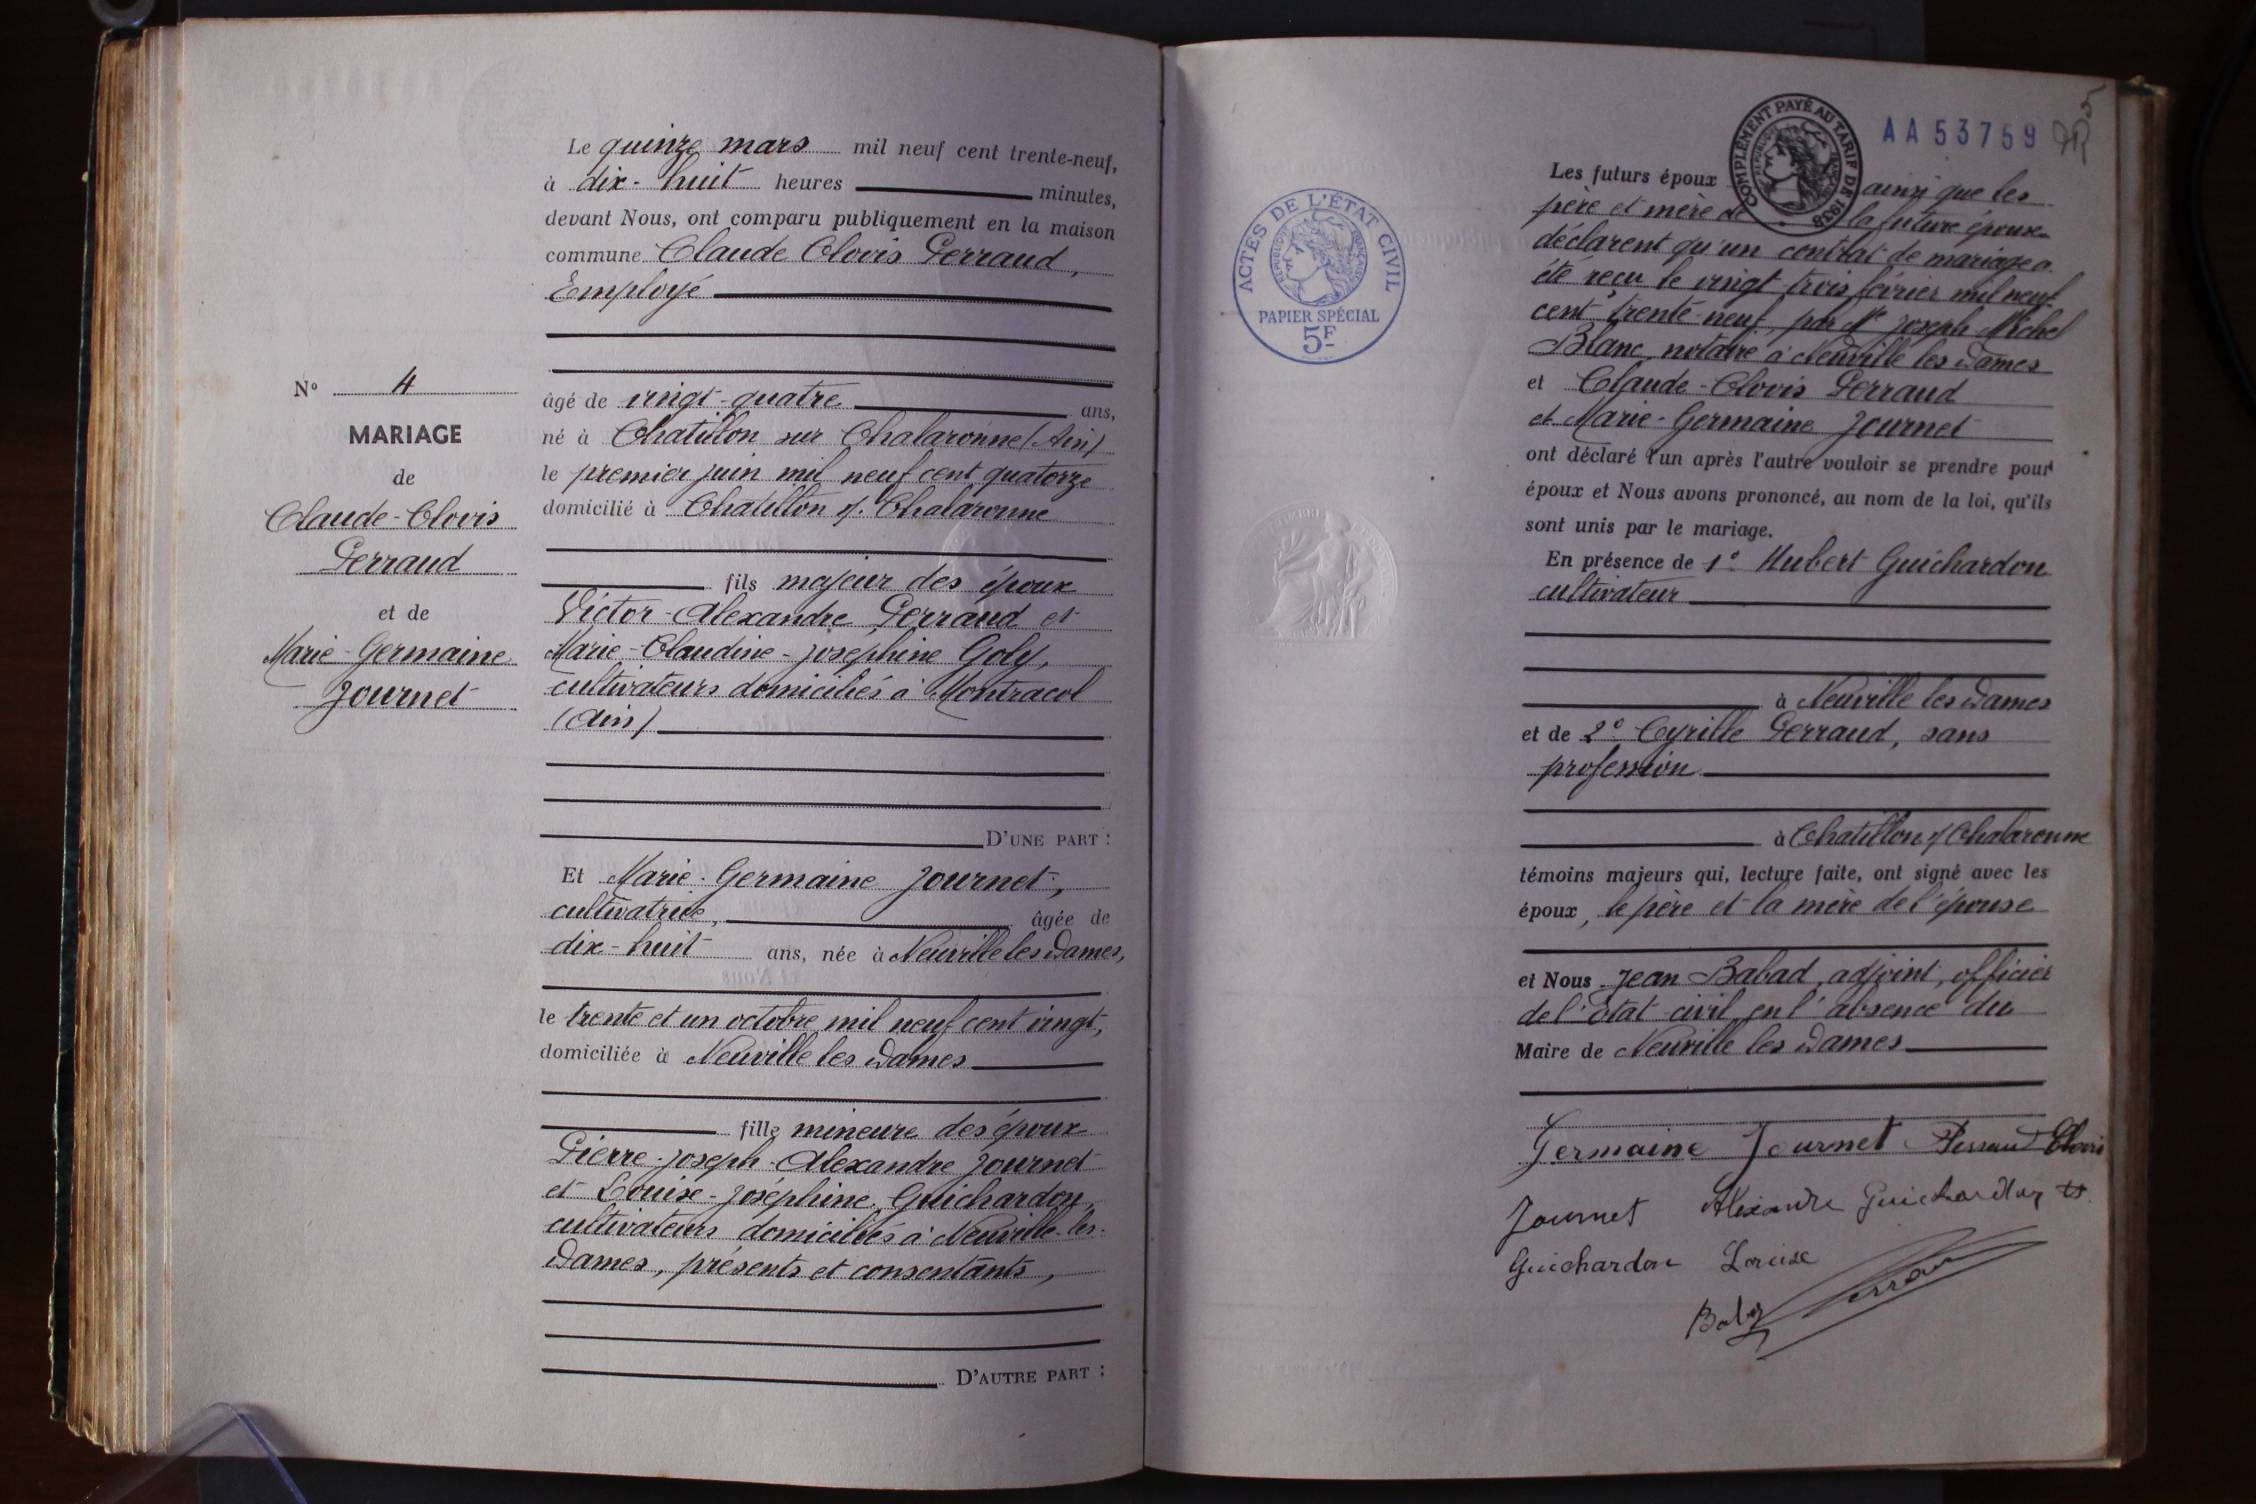 Le quinze mars mil neuf cent trente-neuf,
à dix-huit heures minutes,
devant Nous, ont comparu publiquement en la maison
commune Claude Clovis Perraud,
Employé
âgé de vingt-quatre ans,
né à Chatillon sur Chalaronne (Ain)
le premier juin mil neuf cent quatorze
domicilié à Chatillon s/. Chalaronne
fils majeur des époux
Victor-Alexandre Perraud et
Marie-Claudine-Joséphine Goly,
cultivateurs domiciliés à Montracol
(Ain)
D'UNE PART :
Et Marie-Germaine Journet,
cultivatrice, âgée de
dix-huit ans, née à Neuville les Dames,
le trente et un octobre mil neuf cent vingt,
domiciliée à Neuville les Dames
fille mineure des époux
Pierre-Joseph-Alexandre Journet
et Louise-Joséphine Guichardon,
cultivateurs domiciliés à Neuville-les-
Dames, présents et consentants,
D'AUTRE PART :
N° 4
MARIAGE
de
Claude-Clovis
Perraud
et de
Marie-Germaine
Journet
ACTES DE L'ÉTAT CIVIL
RÉPUBLIQUE FRANÇAISE
PAPIER SPÉCIAL
5F
COMPLÉMENT PAYÉ AU TARIF DE 1938
AA 53759
5
Les futurs époux ainsi que les
père et mère de la future épouse
déclarent qu'un contrat de mariage a
été reçu le vingt-trois février mil neuf
cent trente-neuf, par Me Joseph-Michel
Blanc, notaire à Neuville les Dames
et Claude-Clovis Perraud
et Marie-Germaine Journet
ont déclaré l'un après l'autre vouloir se prendre pour
époux et Nous avons prononcé, au nom de la loi, qu'ils
sont unis par le mariage.
En présence de 1° Hubert Guichardon
cultivateur
à Neuville les Dames
et de 2° Cyrille Perraud, sans
profession
à Chatillon s/ Chalaronne
témoins majeurs qui, lecture faite, ont signé avec les
époux, le père et la mère de l'épouse
et Nous Jean Babad, adjoint, officier
de l'état civil en l'absence du
Maire de Neuville les Dames
Germaine Journet Perraud Clovis
Journet Alexandre Guichardon H.
Guichardon Louise
Perraud